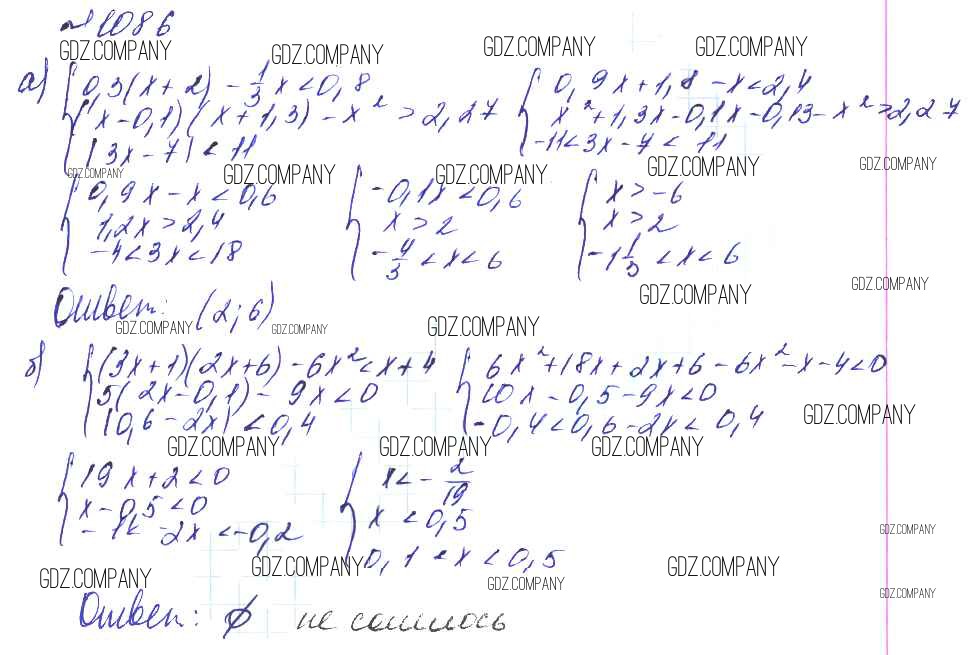 № 1086
GDZ.COMPANY GDZ.COMPANY GDZ.COMPANY GDZ.COMPANY
а) { 0,3(x+2) - 1/3 x < 0,8 { 0,9x + 1,8 - x < 2,4
(x-0,1)(x+1,3) - x² > 2,27 x² + 1,3x - 0,1x - 0,13 - x² > 2,27
|3x-7| < 11 -11 < 3x - 7 < 11
GDZ.COMPANY GDZ.COMPANY GDZ.COMPANY GDZ.COMPANY GDZ.COMPANY
{ 0,9x - x < 0,6 { -0,1x < 0,6 { x > -6
1,2x > 2,4 x > 2 x > 2
-4 < 3x < 18 -4/3 < x < 6 -1 1/3 < x < 6
GDZ.COMPANY GDZ.COMPANY
Ответ: (2; 6)
GDZ.COMPANY GDZ.COMPANY GDZ.COMPANY
б) { (3x+1)(2x+6) - 6x² < x + 4 { 6x² + 18x + 2x + 6 - 6x² - x - 4 < 0
5(2x-0,1) - 9x < 0 10x - 0,5 - 9x < 0
|0,6 - 2x| < 0,4 -0,4 < 0,6 - 2x < 0,4
GDZ.COMPANY
GDZ.COMPANY GDZ.COMPANY GDZ.COMPANY
{ 19x + 2 < 0 { x < - 2/19
x - 0,5 < 0 x < 0,5
-1 < -2x < -0,2 0,1 < x < 0,5
GDZ.COMPANY
GDZ.COMPANY GDZ.COMPANY GDZ.COMPANY GDZ.COMPANY GDZ.COMPANY
Ответ: ∅ не сошлось